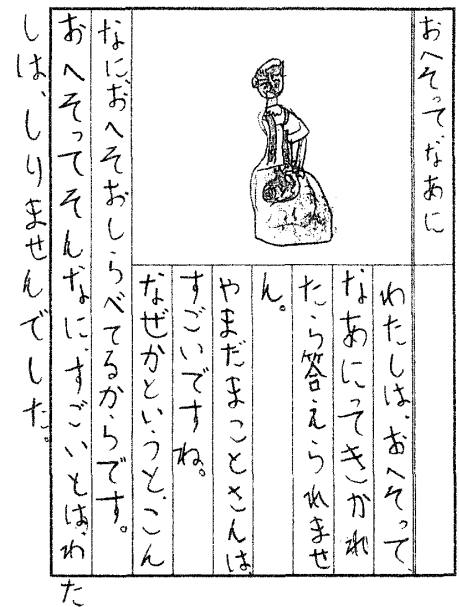 おへそって、なあに
わたしは、おへそって、
なあにってきかれ
たら答えられませ
ん。
やまだまことさんは
すごいですね。
なぜかというと、こん
なに、おへそおしらべてるからです。
おへそってそんなに、すごいとは、わた
しは、しりませんでした。